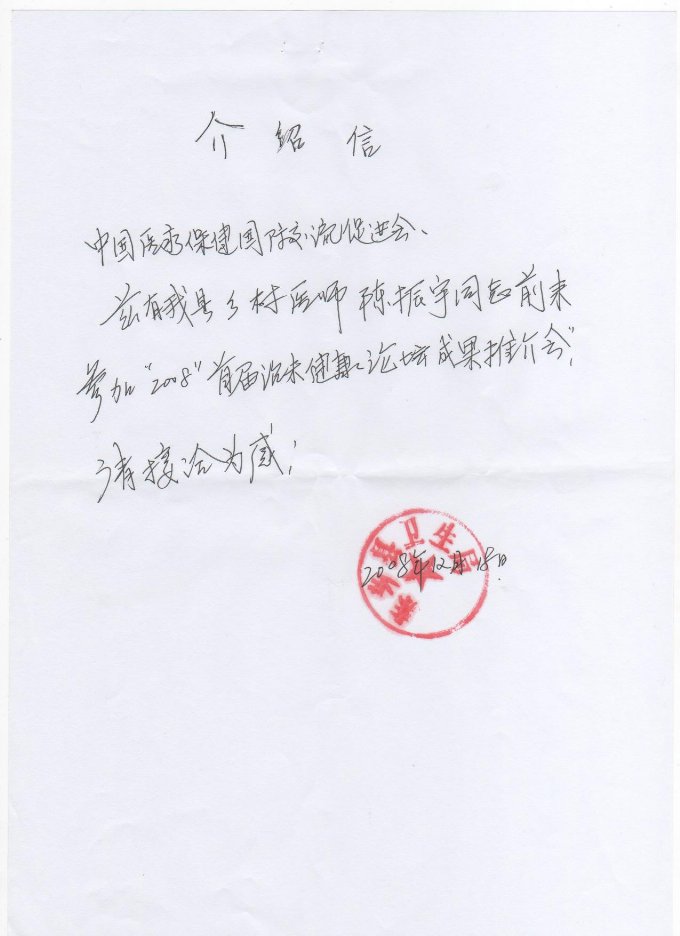 介绍信
中国医疗保健国际交流促进会、
兹有我县乡村医师陈振宇同志前来
参加“2008”首届治未健康论坛成果推介会”,
请接洽为感;
县卫生局
2008年12月15日